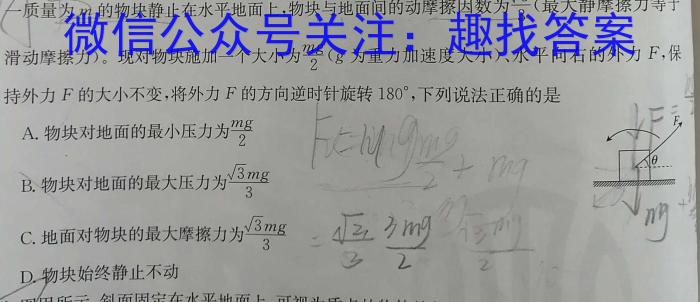 一质量为m的物块静止在水平地面上,物块与地面间的动摩擦因数为 (最大静摩擦力等于
微信公众号关注：趣找答案
滑动摩擦力)。现对物块施加一个大小为mg/2(g为重力加速度大小)、水平向右的外力F,保
持外力F的大小不变,将外力F的方向逆时针旋转180°,下列说法正确的是
A. 物块对地面的最小压力为mg/2
B. 物块对地面的最大压力为√3mg/3
C. 地面对物块的最大摩擦力为√3mg/3
D. 物块始终静止不动
F
θ
mg
mg/2 + mg
= √3/3 3mg/2